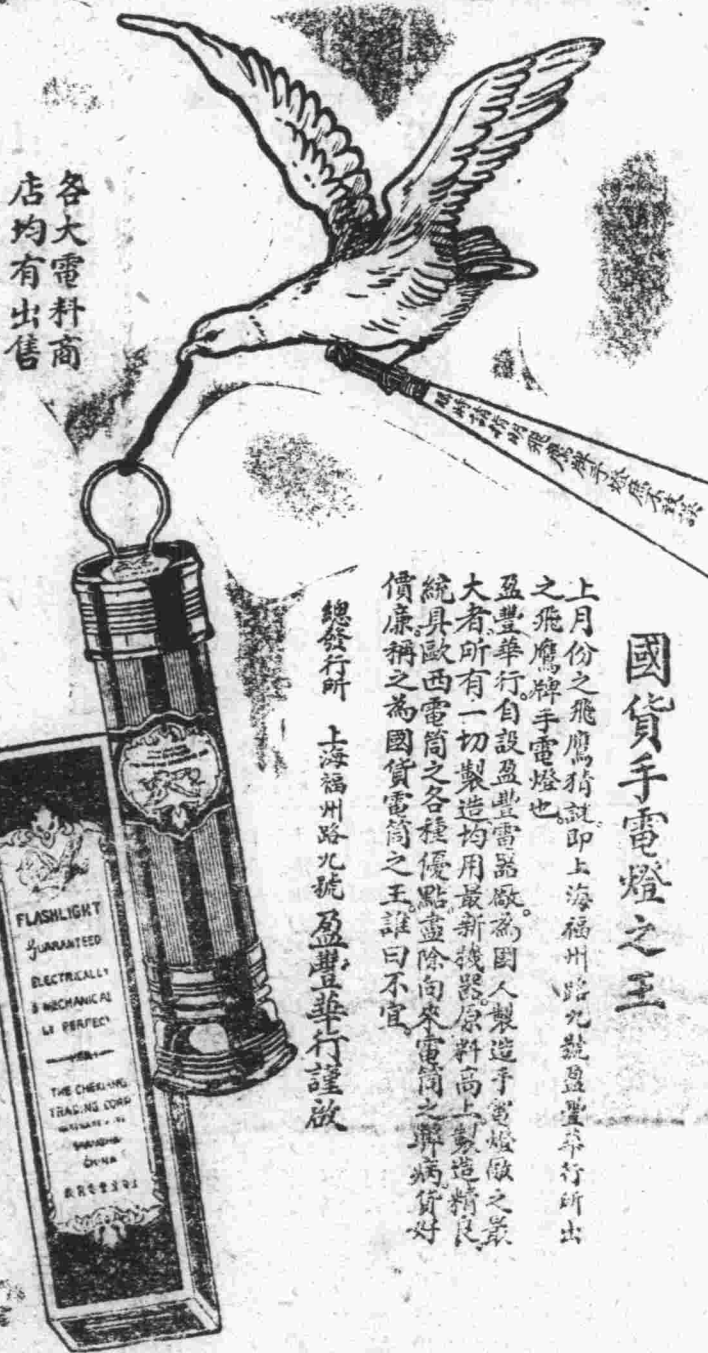 國貨手電燈之王
上月份之飛鷹猜謎即上海福州路九號盈豐華行所出
之飛鷹牌手電燈也
盈豐華行。自設盈豐電器廠。為國人製造手電燈廠之最
大者。所有一切製造均用最新機器。原料高上。製造精良
統具歐西電筒之各種優點。盡除向來電筒之弊病。貨好
價廉。稱之為國貨電筒之王。誰曰不宜
總發行所 上海福州路九號 盈豐華行謹啟
各大電料商
店均有出售
FLASHLIGHT
GUARANTEED
ELECTRICALLY
& MECHANICAL
LY PERFECT
THE
TRADING CORP
SHANGHAI
CHINA